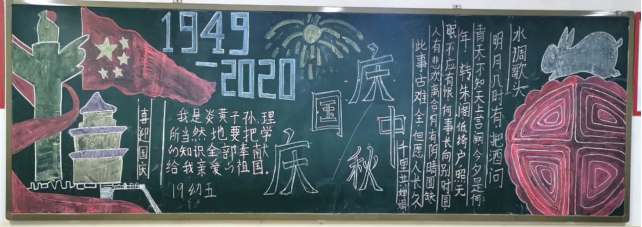 1949
—2020
喜迎国庆
我是炎黄子孙.理
所当然地要把学
的知识全部奉献
给我亲爱の祖国.
19幼五
国庆
庆中秋
水调歌头
明月几时有把酒问
青天不知天上宫阙今夕是何
年 转朱阁低绮户照无
眠不应有恨何事长向别时圆
人有悲欢离合月有阴晴圆缺
此事古难全但愿人长久
千里共婵娟